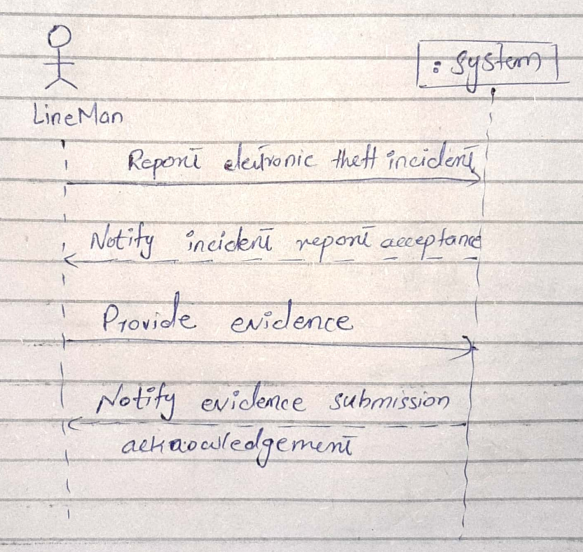 : System
LineMan
Report electronic theft incident
Notify incident report acceptance
Provide evidence
Notify evidence submission
acknowledgement